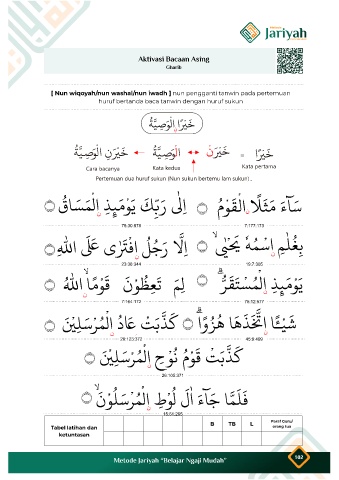 Jariyah
Aktivasi Bacaan Asing
Gharib
[ Nun wiqoyah/nun washal/nun iwadh ] nun pengganti tanwin pada pertemuan
huruf bertanda baca tanwin dengan huruf sukun
خَيْرًا ࣙالْوَصِيَّةُ
خَيْرًا = خَيْرَنْ الْوَصِيَّةُ خَيْرَنِ الْوَصِيَّةُ
Kata pertama Kata kedua Cara bacanya
Pertemuan dua huruf sukun (Nun sukun bertemu lam sukun).
سَآءَ مَثَلًا ࣙالْقَوْمُ ۝ اِلٰى رَبِّكَ يَوْمَىِٕذِ ࣙالْمَسَاقُ ۝
7.177.173 75.30.578
بِغُلٰمِ ࣙاسْمُهٗ يَحْيٰىۙ ۝ اِلَّا رَجُلُ ࣙافْتَرٰى عَلَى اللّٰهِ ۝
19.7.305 23.38.344
يَوْمَىِٕذِ ࣙالْمُسْتَقَرُّۗ ۝ لِمَ تَعِظُوْنَ قَوْمًاۙ ࣙاللّٰهُ ۝
75.12.577 7.164.172
شَيْـًٔا ࣙاتَّخَذَهَا هُزُوًاۗ ۝ كَذَّبَتْ عَادُ ࣙالْمُرْسَلِيْنَ ۝
45.9.499 26.123.372
كَذَّبَتْ قَوْمُ نُوْحِ ࣙالْمُرْسَلِيْنَ ۝
26.105.371
فَلَمَّا جَآءَ اٰلَ لُوْطِ ࣙالْمُرْسَلُوْنَۙ ۝
15.61.265
Tabel latihan dan ketuntasan B TB L Paraf Guru/ orang tua
Metode Jariyah "Belajar Ngaji Mudah" 102